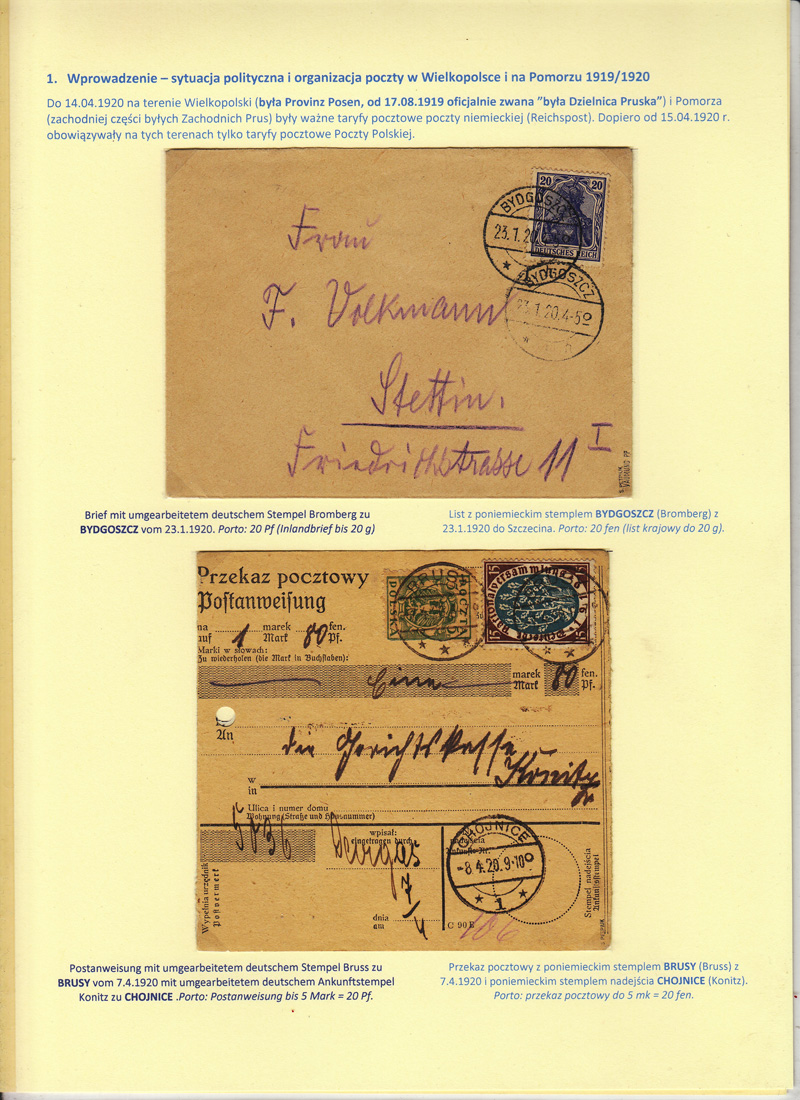 1. Wprowadzenie – sytuacja polityczna i organizacja poczty w Wielkopolsce i na Pomorzu 1919/1920
Do 14.04.1920 na terenie Wielkopolski (była Provinz Posen, od 17.08.1919 oficjalnie zwana ”była Dzielnica Pruska”) i Pomorza
(zachodniej części byłych Zachodnich Prus) były ważne taryfy pocztowe poczty niemieckiej (Reichspost). Dopiero od 15.04.1920 r.
obowiązywały na tych terenach tylko taryfy pocztowe Poczty Polskiej.
20 20
DEUTSCHES REICH
BYDGOSZCZ
23.1.20
BYDGOSZCZ
23.1.20.4-5
Frau
F. Volkmann
Stettin.
Friedrichstrasse 11 I
Brief mit umgearbeitetem deutschem Stempel Bromberg zu
BYDGOSZCZ vom 23.1.1920. Porto: 20 Pf (Inlandbrief bis 20 g)
List z poniemieckim stemplem BYDGOSZCZ (Bromberg) z
23.1.1920 do Szczecina. Porto: 20 fen (list krajowy do 20 g).
Przekaz pocztowy
Postanweisung
na marek fen.
auf 1 Mark 80 Pf.
Marki w słowach:
Zu wiederholen (die Mark in Buchstaben):
Eine marek Mark 80 fen. Pf.
An die Gerichtskasse
Konitz
w
in
Ulica i numer domu
Wohnung (Straße und Hausnummer)
5036
wpisał:
eingetragen durch:
7/4
dnia
am
C 90
106
CHOJNICE
-8.4.20.9-10
1
Wypełnia urzędnik
Postvermerk
Stempel nadejścia
Ankunftsstempel
Postanweisung mit umgearbeitetem deutschem Stempel Bruss zu
BRUSY vom 7.4.1920 mit umgearbeitetem deutschem Ankunftstempel
Konitz zu CHOJNICE .Porto: Postanweisung bis 5 Mark = 20 Pf.
Przekaz pocztowy z poniemieckim stemplem BRUSY (Bruss) z
7.4.1920 i poniemieckim stemplem nadejścia CHOJNICE (Konitz).
Porto: przekaz pocztowy do 5 mk = 20 fen.